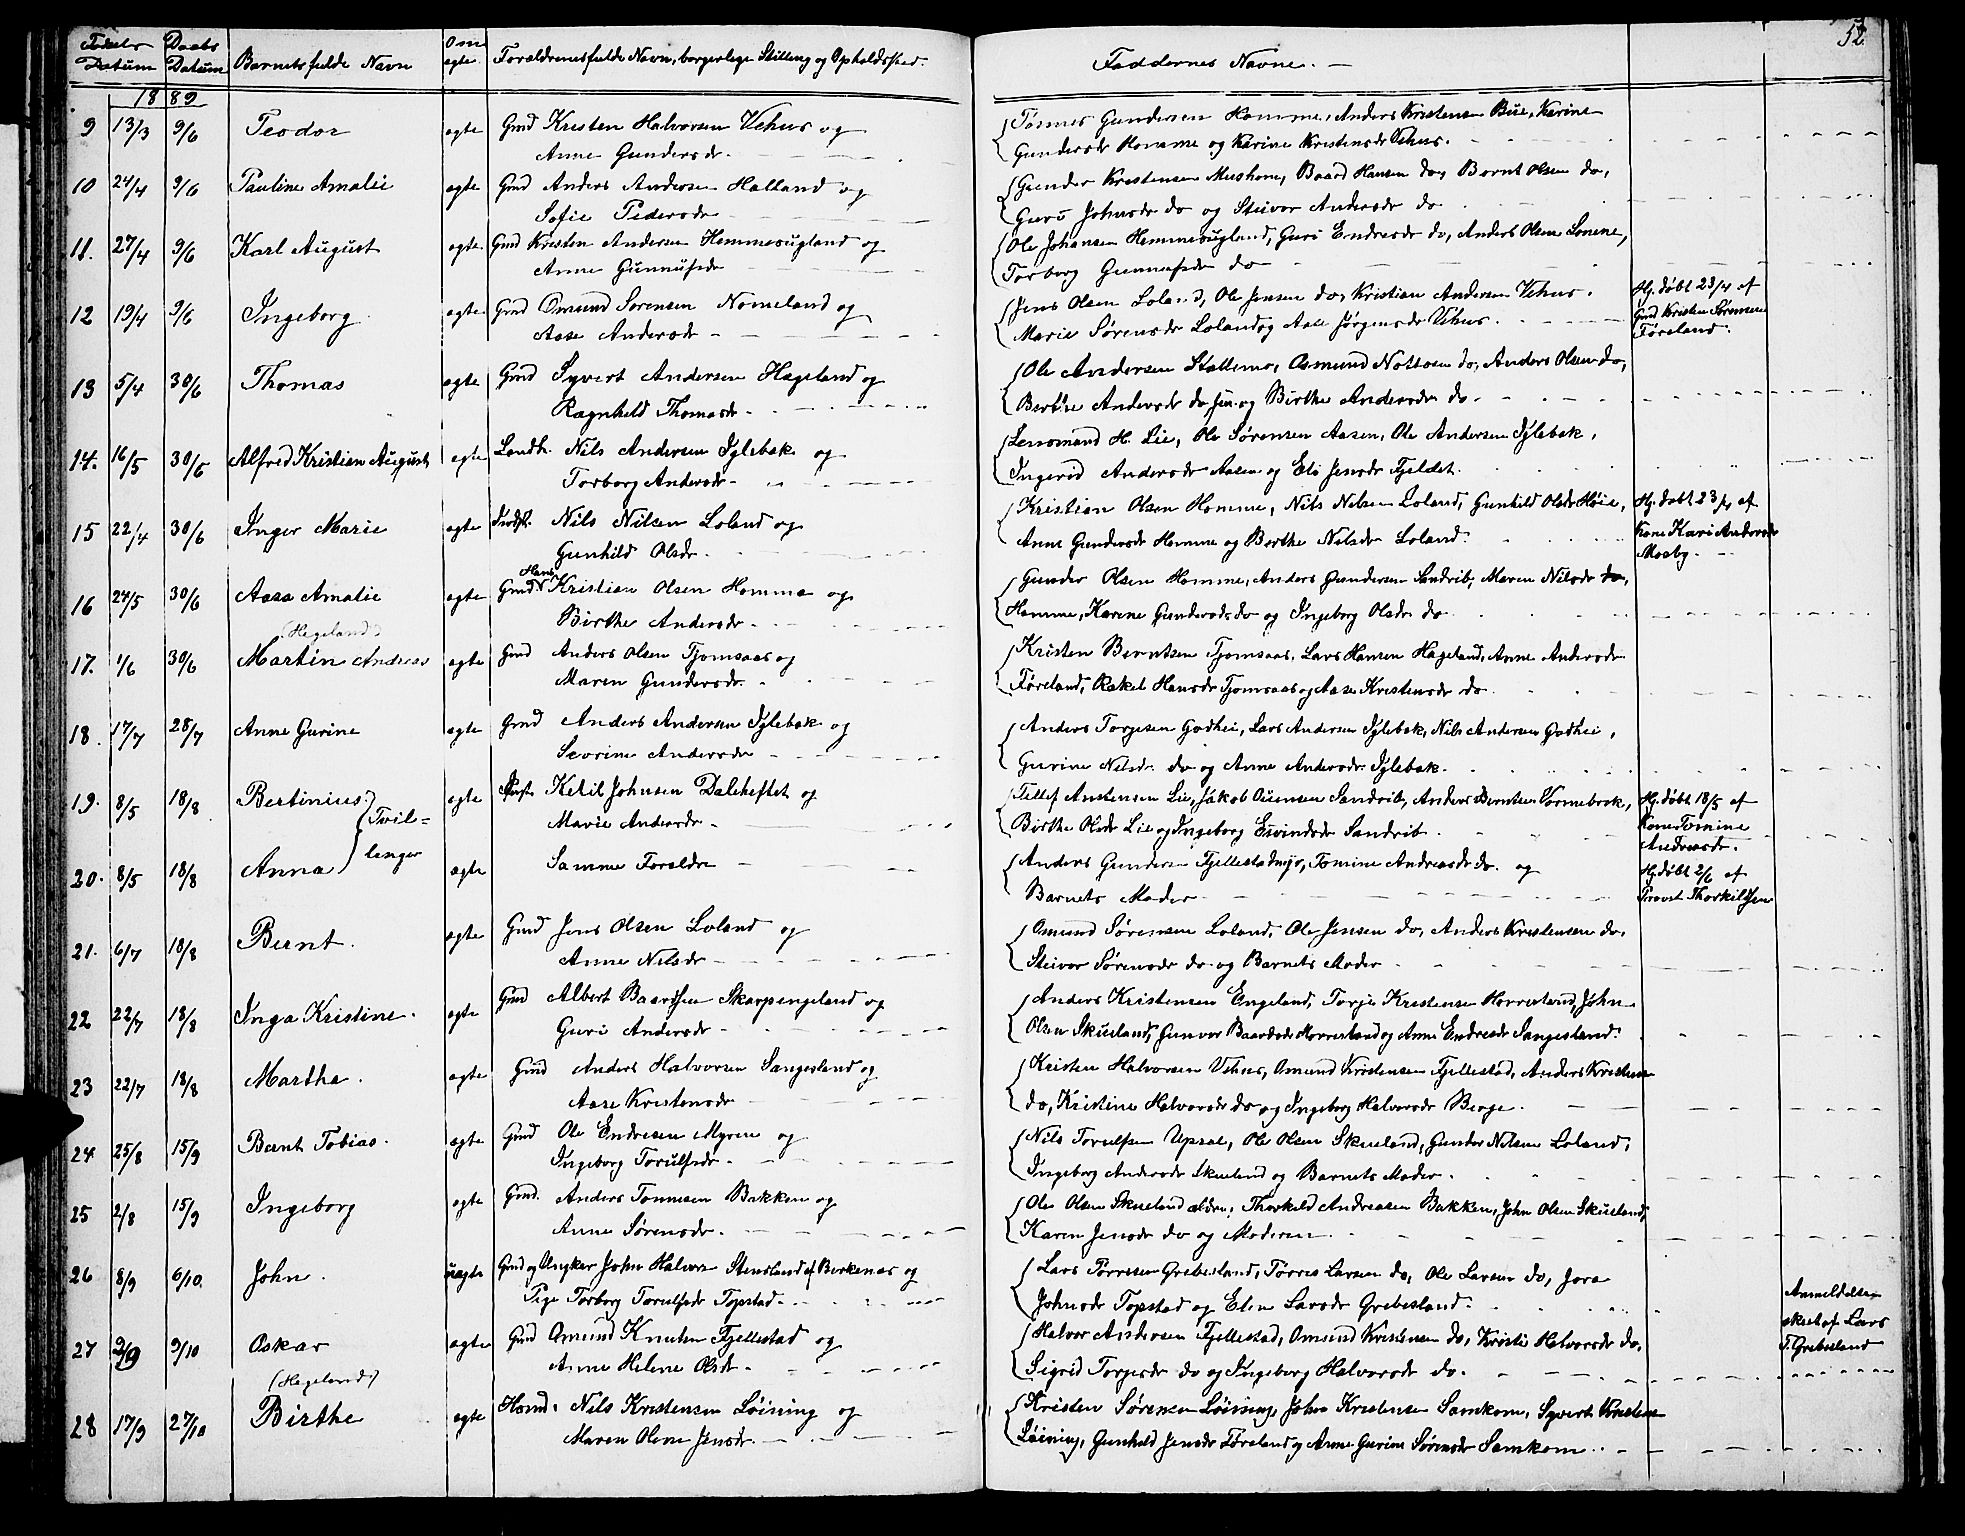 52
Fødsels Datum Daabs Datum Barnets fulde Navn Om ægte. Forældrenes fulde Navn, borgerlige Stilling og Opholdssted.
Faddernes Navne. —
1889
9 13/3 9/6 Teodor ægte Gmd Kristen Halvorsen Vehus og
Anne Gundersdr.
Tønnes Gundersen Homme, Anders Kristensen Bue, Karine
Gundersdr Homme og Karine Kristensdr Vehus.
10 24/4 9/6 Pauline Amalie ægte Gmd Anders Andersen Halland og
Sofie Pedersdr
Gunder Kristensen Mushom, Baard Hansen do, Bernt Olsen do,
Guro Johnsdr do og Steivor Andersdr do
11. 27/4 9/6 Karl August ægte Gmd Kristen Andersen Hemmesugland og
Anne Gunnufsdr
Ole Johansen Hemmesugland, Guri Endresdr do, Anders Olsen Lonene,
Torborg Gunnufsdr do
12 19/4 9/6 Ingeborg. ægte Gmd Omund Sørensen Nomeland og
Aase Andersdr
Jens Olsen Loland, Ole Jensen do, Kristian Andersen Vehus.
Marie Sørensdr Loland og Aase Jørgensdr Vehus.
Hj. døbt 23/4 af
Gmd Kristen Sørensen
Føreland.
13 5/4 30/6 Thomas ægte Gmd Syvert Andersen Hageland og
Ragnhild Thomasdr.
Ole Andersen Stallemo, Osmund Nottosen do, Anders Olsen do,
Berthe Andersdr do, Jen. og Birthe Andersdr do.
14. 16/5 30/6 Alfred Kristian August ægte Landh. Nils Andersen Iglebæk og
Torborg Andersdr.
Lensmand H. Lie, Ole Sørensen Aasen, Ole Andersen Iglebæk,
Ingerid Andersdr Aasen og Eli Jensdr Fjeldet.
15 22/4 30/6 Inger Marie ægte Nils Nilsen Loland og
Gunhild Olsdr.
Kristian Olsen Homme, Nils Nilsen Loland, Gunhild Olsdr Høie,
Anne Gundersdr Homme og Berthe Nilsdr Loland.
Hj. døbt 23/4 af
Kone Kari Andersdr
Mosby.
16 24/5 30/6 Aasa Amalie ægte Gmd Hans Kristian Olsen Homme og
Birthe Andersdr.
Gunder Olsen Homme, Anders Gundersen Sandrib, Maren Nilsdr do,
Homme, Karine Gundersdr do og Ingeborg Olsdr do.
(Hegeland)
17. 1/6 30/6 Martin Andreas ægte Gmd Anders Olsen Tjomsaas og
Maren Gundersdr.
Kristen Berntsen Tjomsaas, Lars Hansen Hageland, Anne Andersdr
Føreland, Rakel Hansdr Tjomsaas og Aase Kristensdr do.
18. 17/7 28/7 Anne Gurine ægte Gmd Anders Andersen Iglebæk og
Severine Andersdr
Anders Torgesen Godhei, Lars Andersen Iglebæk, Nils Andersen Godhei,
Gurine Nilsdr. do og Anne Andersdr Iglebæk.
19. 8/5 18/8 Bertinius ægte Ketil Johnsen Daleheftet og
Marie Andersdr
Tvil=
linger
Tellef Anstensen Lie, Jakob Ouensen Sandrib, Anders Berntsen Vormebrok,
Birthe Olsdr Lie og Ingeborg Eivindsdr Sandrib.
Hj. døbt 18/5 af
Kone Tomine
Andreasdr.
20. 8/5 18/8 Anna ægte Samme Foraldre
Anders Gundersen Fjellestadmyr, Tomine Andreasdr do. og
Barnets Moder
Hj. døbt 2/6 af
Provst Thorkildsen
21. 6/7 18/8 Bernt. ægte Gmd Jens Olsen Loland og
Anne Nilsdr
Omund Sørensen Loland, Ole Jensen do, Anders Kristensen do.
Steivor Sørensdr do. og Barnets Moder
22 22/7 18/8 Inga Kristine. ægte Gmd Albert Baardsen Skarpengeland og
Guri Andersdr
Anders Kristensen Engeland, Torje Kristensen Horrestand, John
Olsen Skueland, Gunvor Baardsdr Horrestand og Anne Endresdr Sangesland.
23 22/7 18/8 Marthe. ægte Gmd Anders Halvorsen Sangesland og
Aase Kristensdr
Kristen Halvorsen Vehus, Omund Kristensen Fjellestad, Anders Kristensen
do, Kristine Halvorsdr do og Ingeborg Halvorsdr Berge.
24 25/8 15/9 Bernt Tobias. ægte Gmd Ole Endresen Myren og
Ingeborg Torulfsdr.
Nils Torulfsen Upsal, Ole Olsen Skueland, Gunder Nilsen Loland,
Ingeborg Andersdr Skueland og Barnets Moder.
25 2/8 15/9 Ingeborg ægte Gmd. Anders Tønnesen Bakken og
Anne Sørensdr.
Ole Olsen Skueland ældre, Thorkild Andreasen Bakken, John Olsen Skueland,
Karen Jensdr do og Moderen.
26 8/9 6/10 John. uægte Gmd og Ungkar John Halvors Stensland af Birkenæs og
Pige Torborg Torulfsdr Topstad.
Lars Torresen Grebesland, Tørres Larsen do, Ole Larsen do, Jora
Johnsdr Topstad og Elen Larsdr Grebesland.
Anmeldelse
skeet af Lars
T. Grebesland
27 2/9 9/10 Oskar ægte Gmd Omund Knutsen Fjellestad og
Anne Helene Olsdr.
Halvor Andersen Fjellestad, Omund Kristensen do, Kristi Halvorsdr do.
Sigrid Torgesdr do og Ingeborg Halvorsdr do.
(Hegeland)
28 17/9 27/10 Birthe ægte Nils Kristensen Løining og
Maren Olene Jensdr.
Kristen Sørensen Løining, John Kristensen Samkom, Syvert Kristensen
Løining, Gunhild Jensdr Føreland og Anne Gurine Sørensdr Samkom.